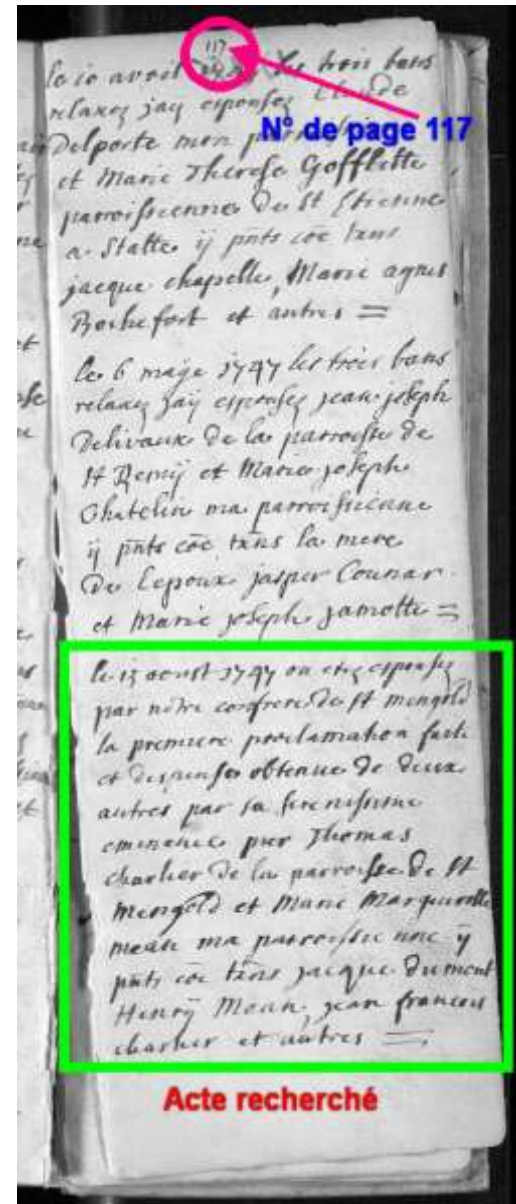 117
le 10 avril les trois bans
relaxez jay espousez Claude
N° de page 117
Delporte mon
et Marie Therese Gofflette
parroissienne de St Etienne
a Statte ij pnts coe tans
jacque chapelle, Marie agnes
Rochefort et autres =
le 6 maije 1747 les trois bans
relaxez jaij espousez jean joseph
Delivaux de la parroisse de
St Remij et Marie joseph
Chatelin ma parroissienne
ij pnts coe tans la mere
De Lepoux jasper Counar
et Marie joseph jamotte =
le 13 aoust 1747 on etez espousez
par nôtre confrere de St mengold
la premiere proclamation faite
et dispense obtenue de deux
autres par sa serenissime
eminence pier Thomas
charlier de la parroisse de St
Mengold et Marie
mean ma parroissienne ij
pnts coe tans jacque Dumont
Henrij Mean, jean francois
charlier et autres =
Acte recherché